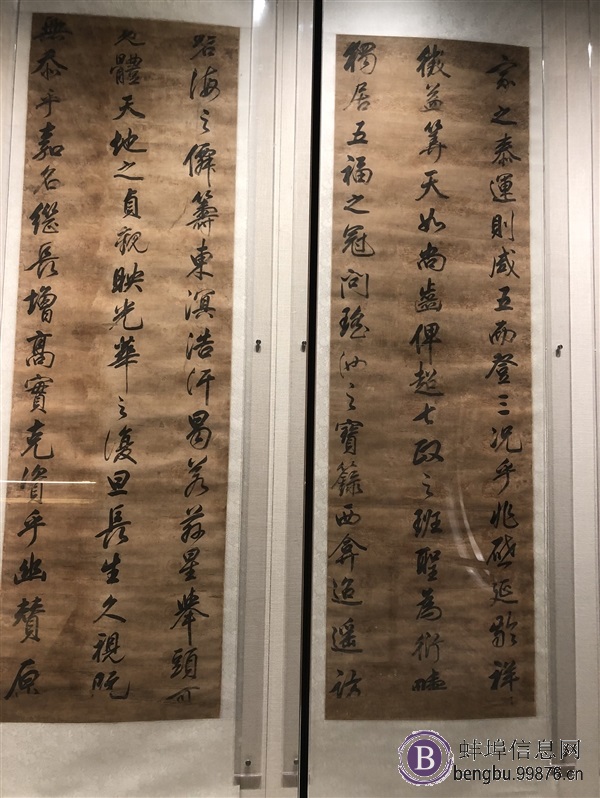 家之泰運則咸五而登三况乎兆啟延齡祥
徵益筭天如尚齒俾超七政之班聖為衍疇
獨居五福之冠問瑤池之寶籙西弇迢遥訪
路海之僊籌東溟浩汗曷若茲星舉頭可
體天地之貞觀映光華之復旦長生久視既
無忝乎嘉名繼長增高實克資乎幽贊原
蚌埠信息网
bengbu.99876.cn